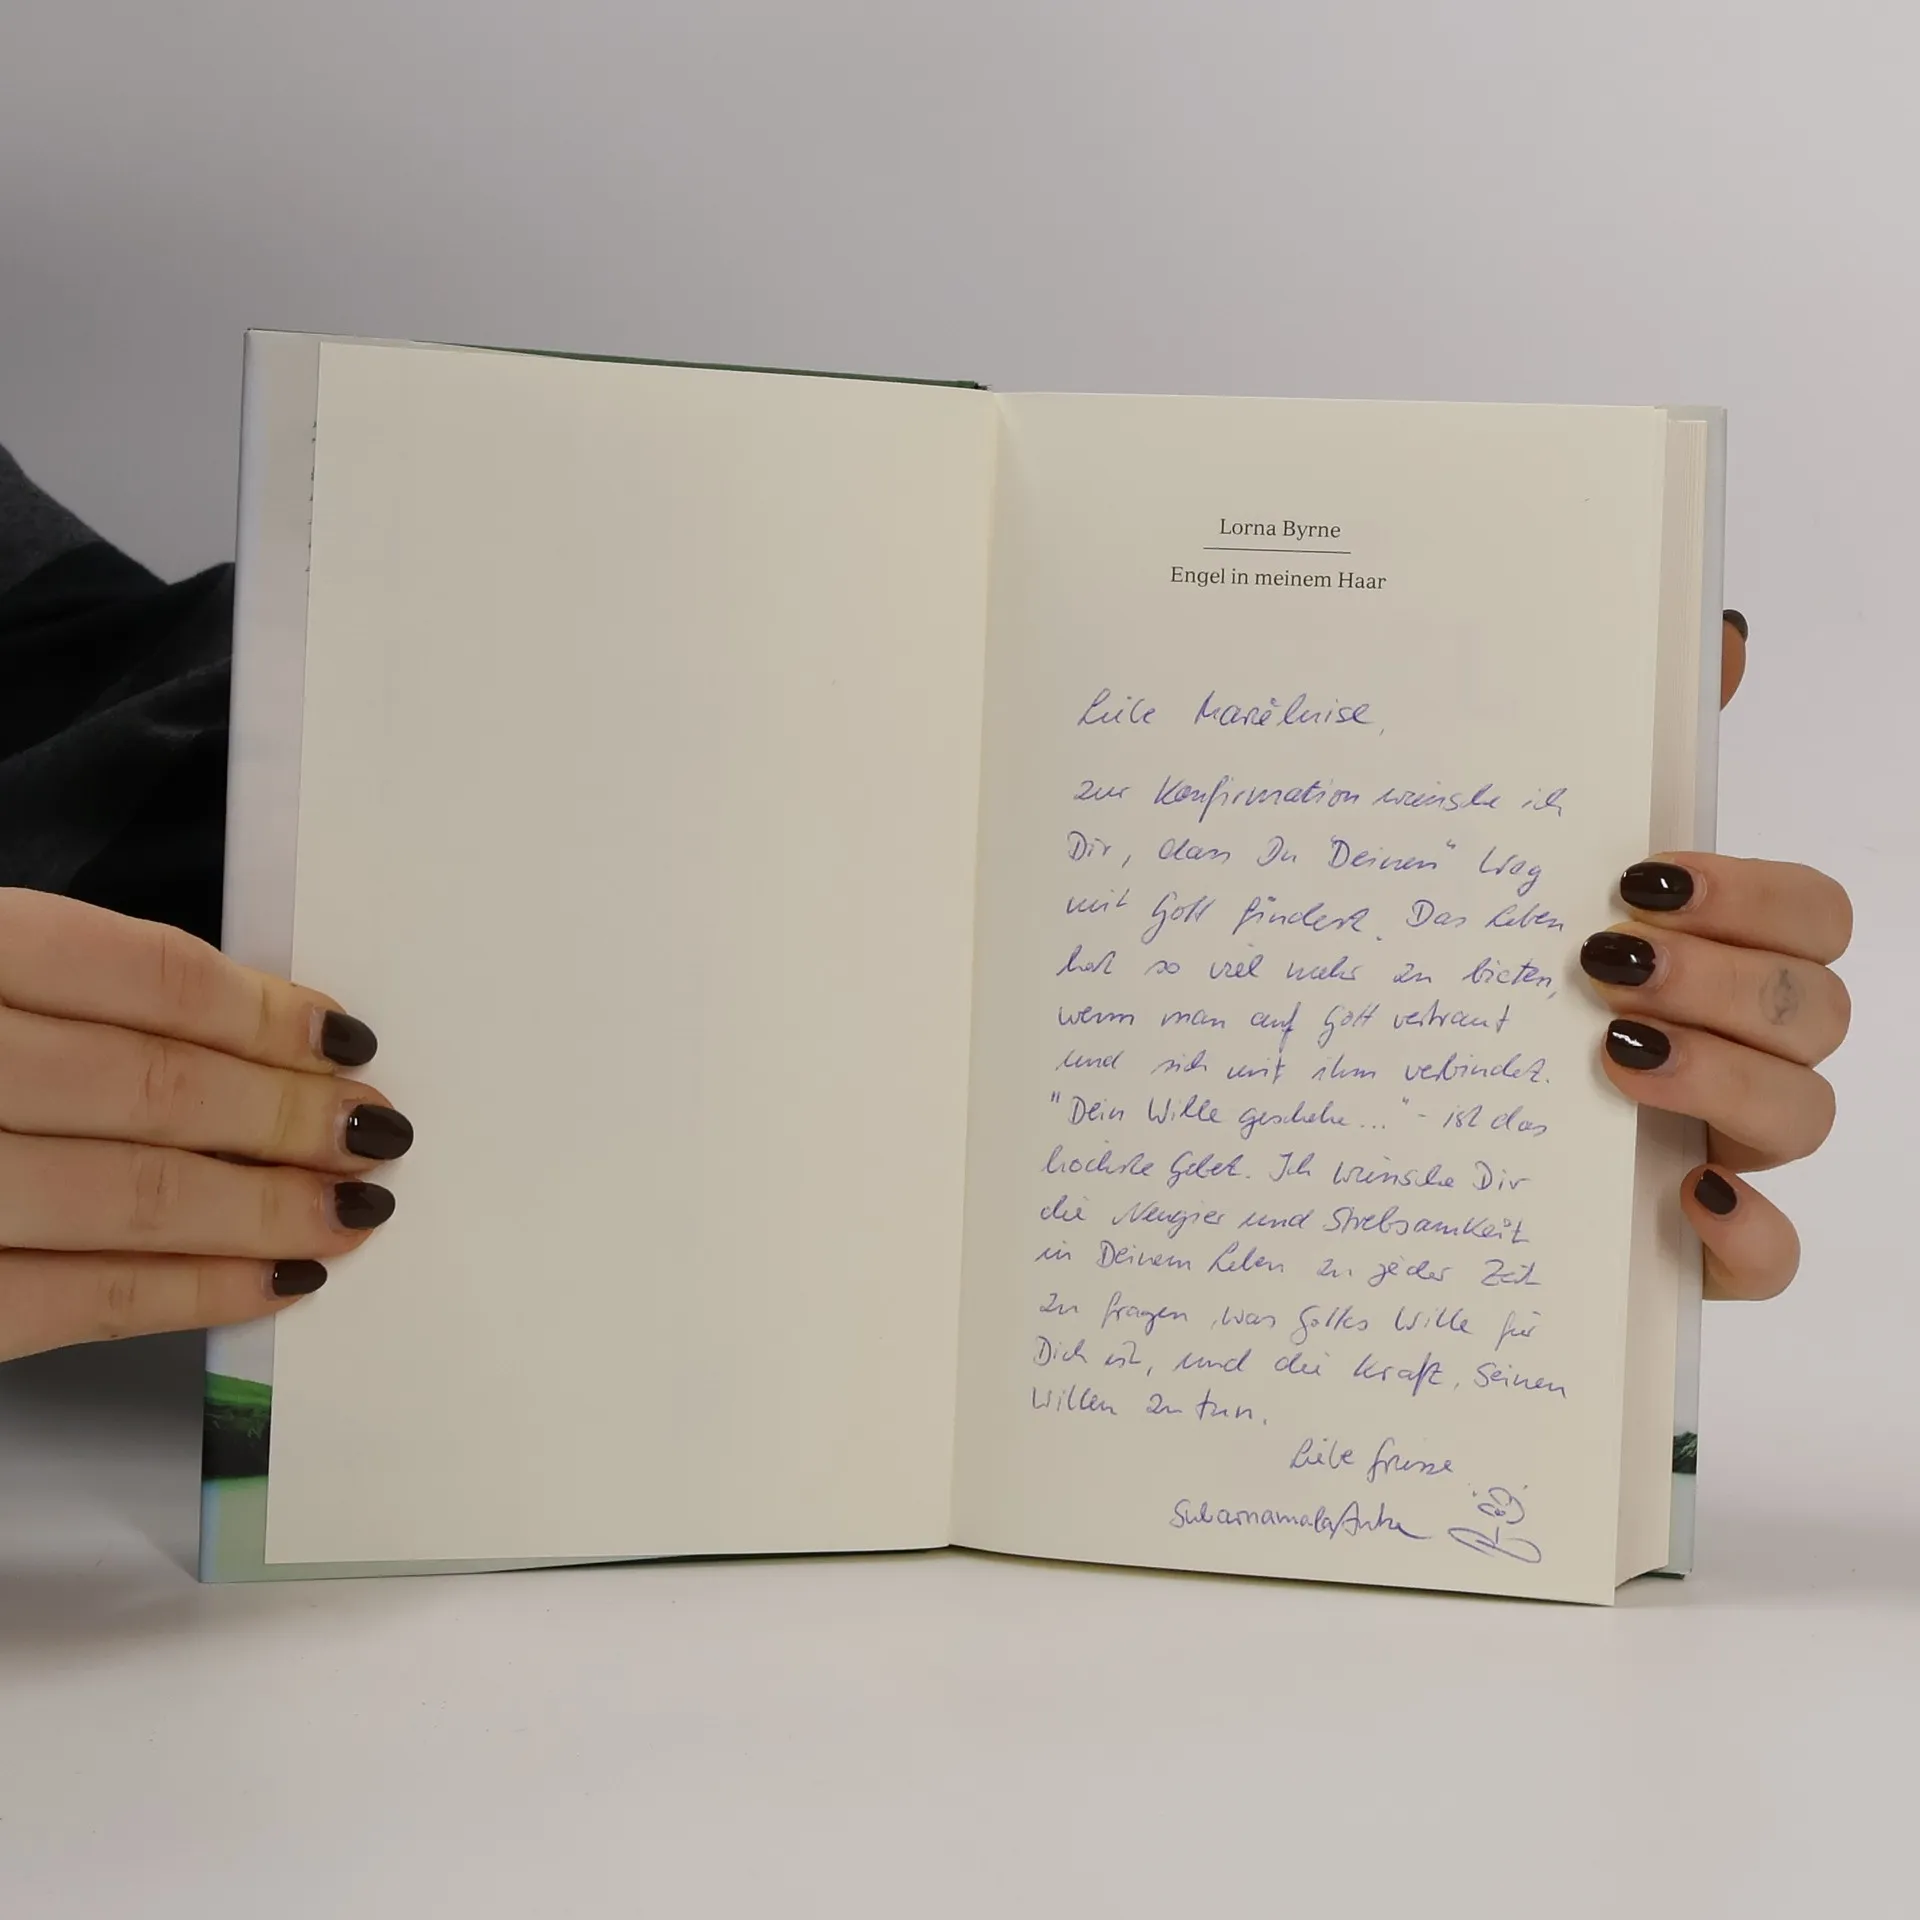 Lorna Byrne
Engel in meinem Haar
Liebe Marieluise,
zur Konfirmation wünsche ich
Dir, dass Du "Deinen" Weg
mit Gott findest. Das Leben
hat so viel mehr zu bieten,
wenn man auf Gott vertraut
und sich mit ihm verbindet.
"Dein Wille geschehe..." - ist das
höchste Gebet. Ich wünsche Dir
die Neugier und Strebsamkeit
in Deinem Leben zu jeder Zeit
zu fragen, was Gottes Wille für
Dich ist, und die Kraft, Seinen
Willen zu tun.
Liebe Grüsse